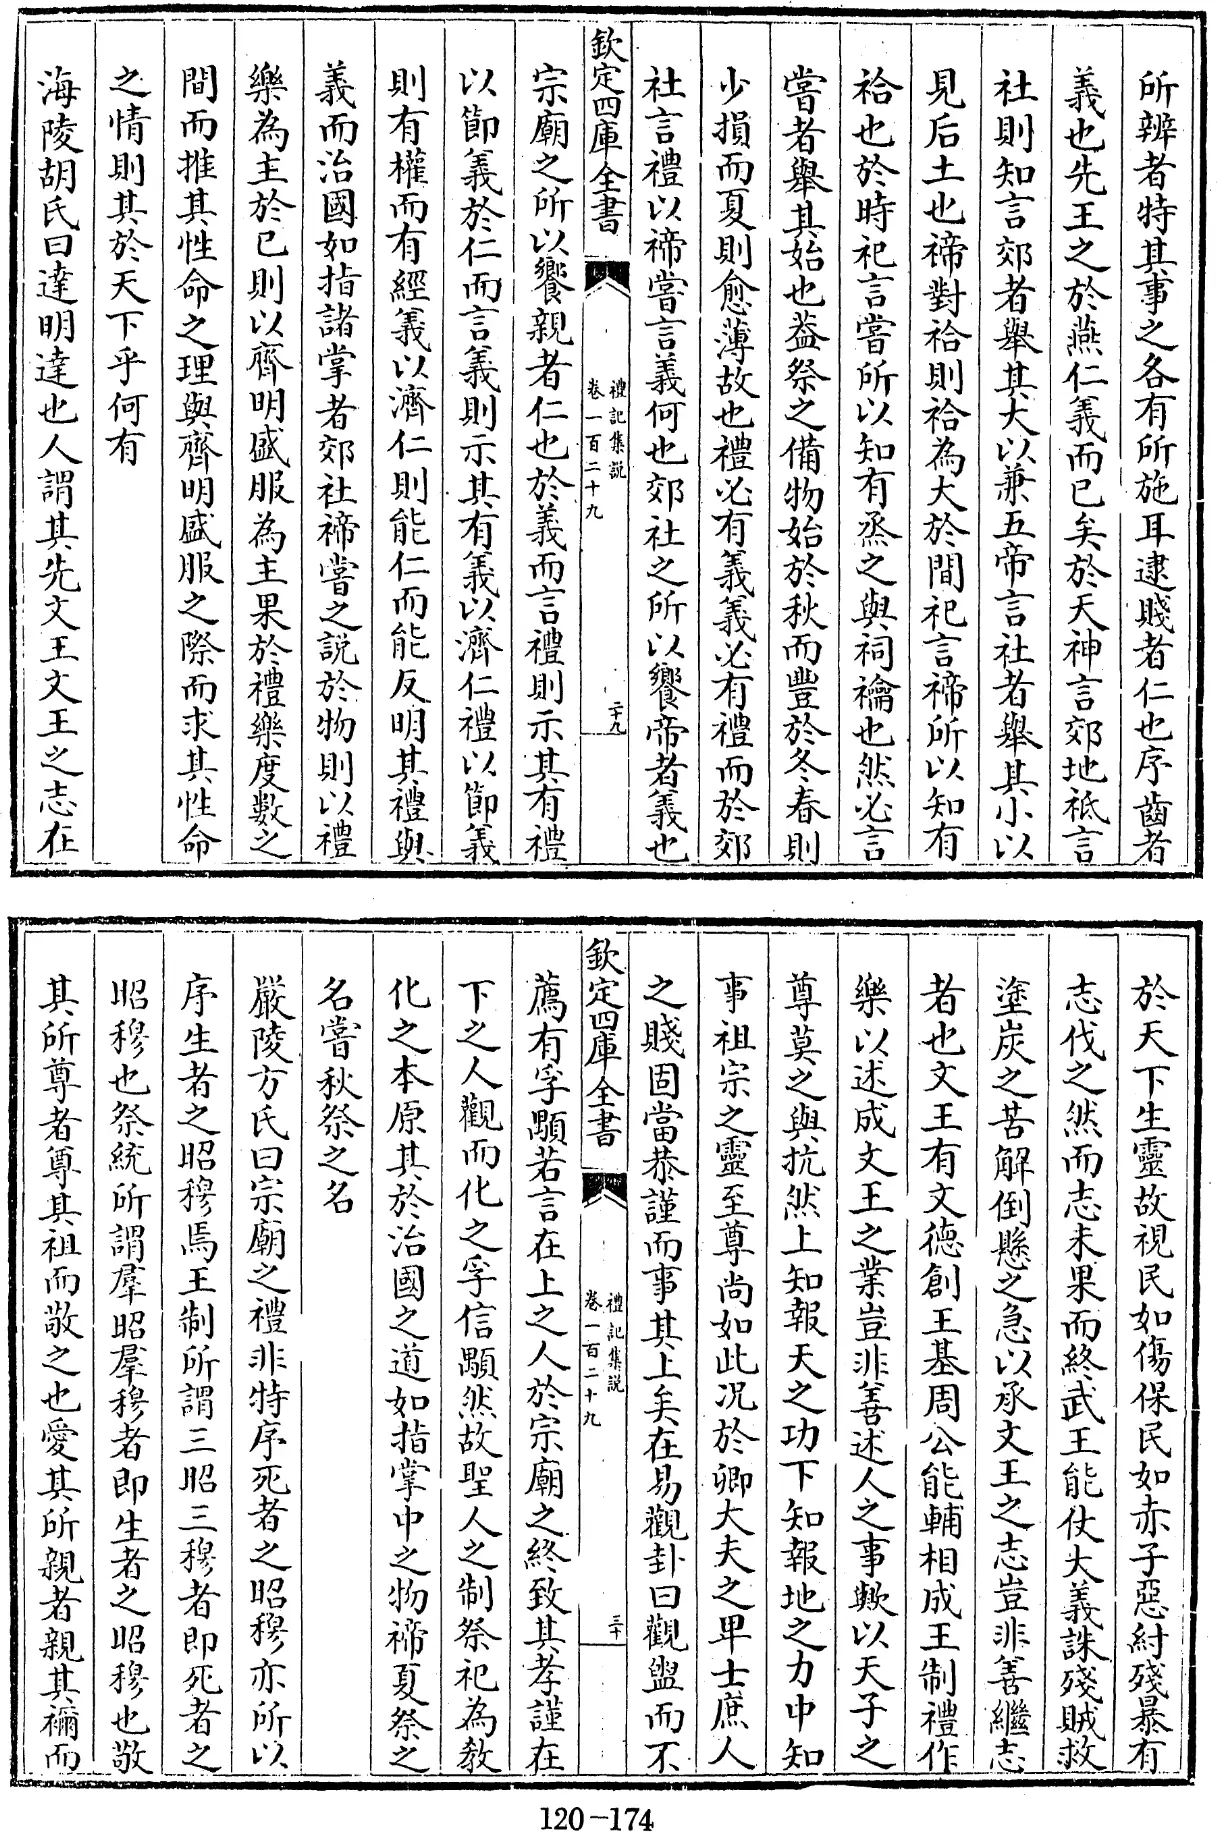 所辨者特其事之各有所施耳逮賤者仁也序齒者
義也先王之於燕仁義而已矣於天神言郊地祗言
社則知言郊者舉其大以兼五帝言社者舉其小以
見后土也禘對祫則祫為大於間祀言禘所以知有
祫也於時祀言嘗所以知有烝之與祠禴也然必言
嘗者舉其始也葢祭之備物始於秋而豐於冬春則
少損而夏則愈薄故也禮必有義義必有禮而於郊
社言禮以禘嘗言義何也郊社之所以饗帝者義也
欽定四庫全書
禮記集説
卷一百二十九
二十九
宗廟之所以饗親者仁也於義而言禮則示其有禮
以節義於仁而言義則示其有義以濟仁禮以節義
則有權而有經義以濟仁則能仁而能反明其禮與
義而治國如指諸掌者郊社禘嘗之説於物則以禮
樂為主於已則以齊明盛服為主果於禮樂度數之
間而推其性命之理與齊明盛服之際而求其性命
之情則其於天下乎何有
海陵胡氏曰達明達也人謂其先文王文王之志在
於天下生靈故視民如傷保民如赤子惡紂殘暴有
志伐之然而志未果而終武王能仗大義誅殘賊救
塗炭之苦解倒懸之急以承文王之志豈非善繼志
者也文王有文德創王基周公能輔相成王制禮作
樂以述成文王之業豈非善述人之事歟以天子之
尊莫之與抗然上知報天之功下知報地之力中知
事祖宗之靈至尊尚如此况於卿大夫之卑士庶人
之賤固當恭謹而事其上矣在易觀卦曰觀盥而不
欽定四庫全書
禮記集説
卷一百二十九
三十
薦有孚顒若言在上之人於宗廟之終致其孝謹在
下之人觀而化之孚信顒然故聖人之制祭祀為教
化之本原其於治國之道如指掌中之物禘夏祭之
名嘗秋祭之名
嚴陵方氏曰宗廟之禮非特序死者之昭穆亦所以
序生者之昭穆焉王制所謂三昭三穆者即死者之
昭穆也祭統所謂羣昭羣穆者即生者之昭穆也敬
其所尊者尊其祖而敬之也愛其所親者親其禰而
120-174